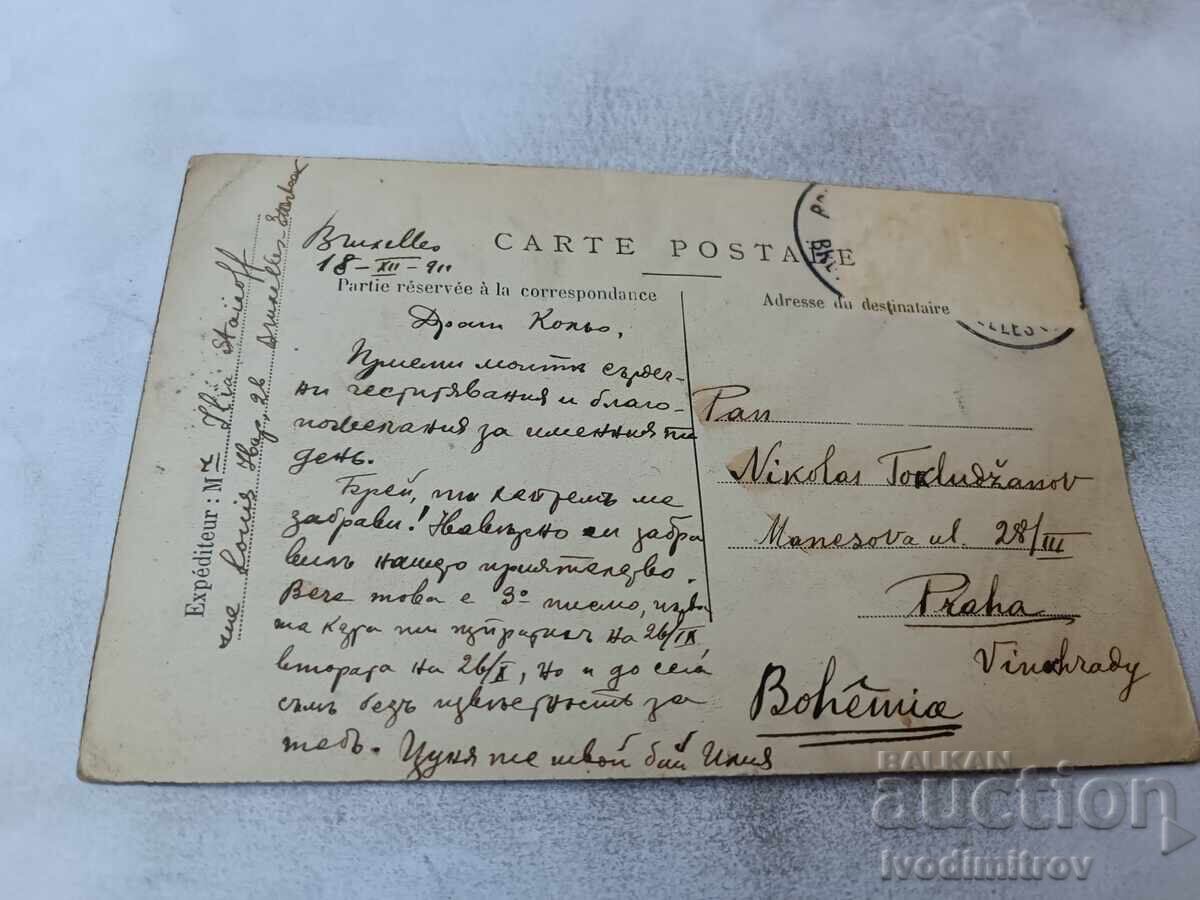 Bruxelles
18-XII-911
CARTE POSTALE
Partie réservée à la correspondance
Adresse du destinataire
Драги Кольо,
Приеми моитѣ сърдеч-
ни честитявания и благо-
пожелания за именния ти
день.
Брей, ти
забрави! Навѣрно си забра
вилъ нашето приятелство.
Вече това е 3º писмо,
та карта ти изпратихъ на 26/IX
втората на 26/X, но и до сега
съмъ безъ известность за
тебъ. Цуня те твой бай Илия
Expéditeur: Mr Ilia Stainoff
rue Louis Hap, 26 Bruxelles-Etterbeek
Pan
Nikolas Tokludžanov
Manesova ul. 28/III
Praha
Vinohrady
Bohêmia
BALKAN
auction
ivodimitrov